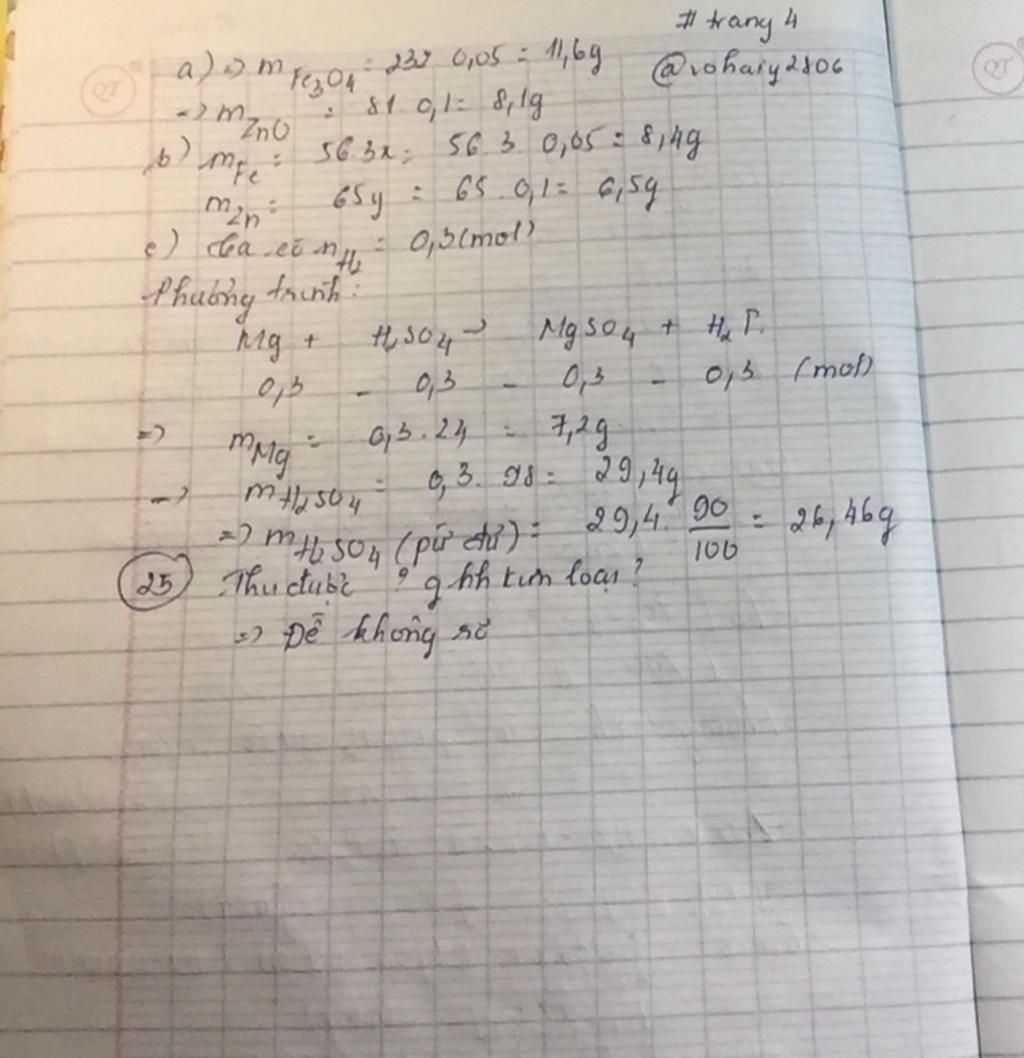 # trang 4
@vohaiy2806
a) => m Fe3O4 = 232 0,05 = 11,6g
=> m ZnO = 81 0,1 = 8,1g
b) m Fe = 56.3x = 56.3.0,05 = 8,4g
m Zn = 65y = 65.0,1 = 6,5g
c) Ta có n H2 = 0,3(mol)
Phương trình:
Mg + H2SO4 → MgSO4 + H2↑.
0,3 - 0,3 - 0,3 - 0,3 (mol)
=> m Mg = 0,3.24 = 7,2g
=> m H2SO4 = 0,3.98 = 29,4g
=> m H2SO4 (pứ đủ) = 29,4. 90/100 = 26,46g
25 Thu được ? g hh kim loại?
=> Đề không rõ
QT
QT